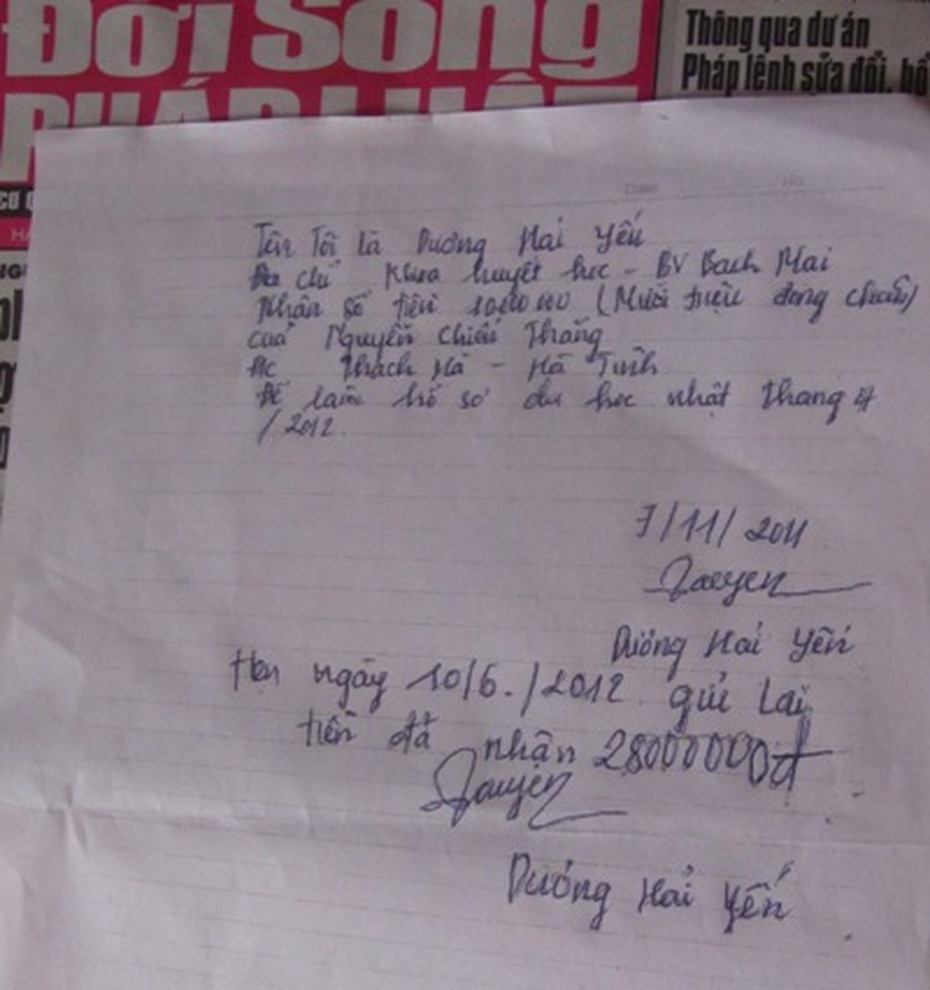 Đời Sống
PHÁP LUẬT
Thông qua dự án
Pháp lệnh sửa đổi, bổ
Date No
Tên Tôi là Dương Hải Yến
Địa chỉ Khoa huyết học - BV Bạch Mai
Nhận số tiền (Mười triệu đồng chẵn)
của Nguyễn Chiến Thắng
ĐC Thạch Hà - Hà Tĩnh
Để làm hồ sơ du học nhật tháng 4
/2012.
7/11/2011
Dương Hải Yến
Hẹn ngày 10/6./2012 gửi lại
tiền đã nhận 28000000đ
Dương Hải Yến